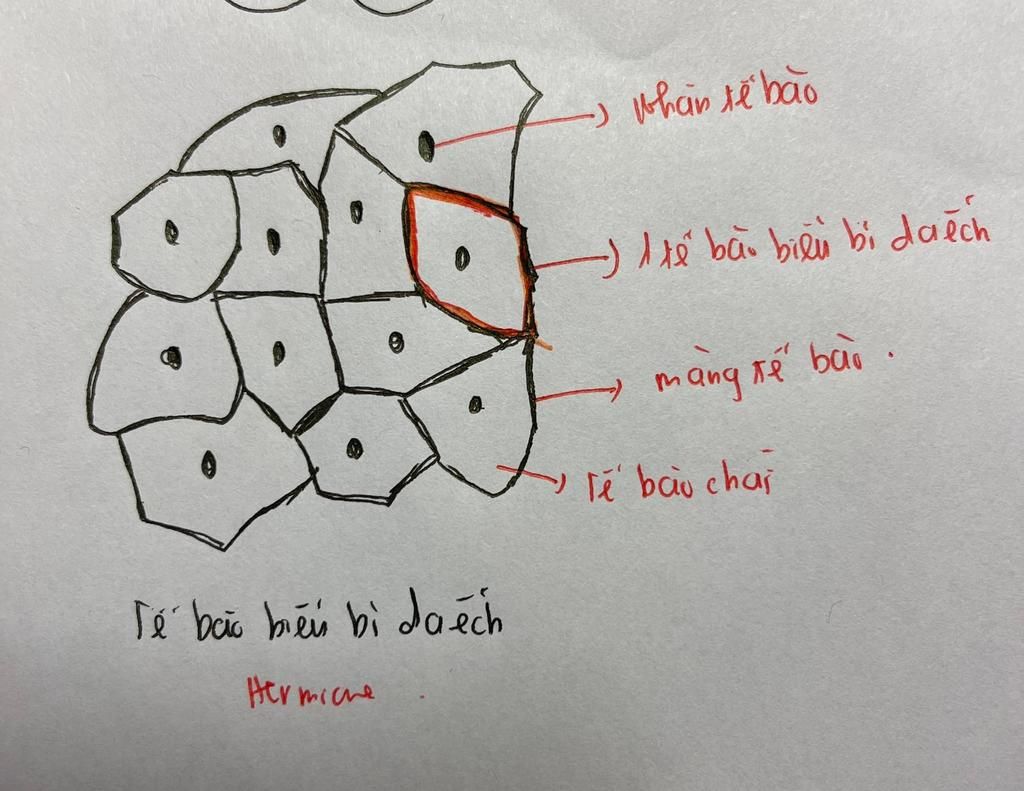 nhân tế bào
1 tế bào biểu bì da ếch
màng tế bào.
Tế bào chất
Tế bào biểu bì da ếch